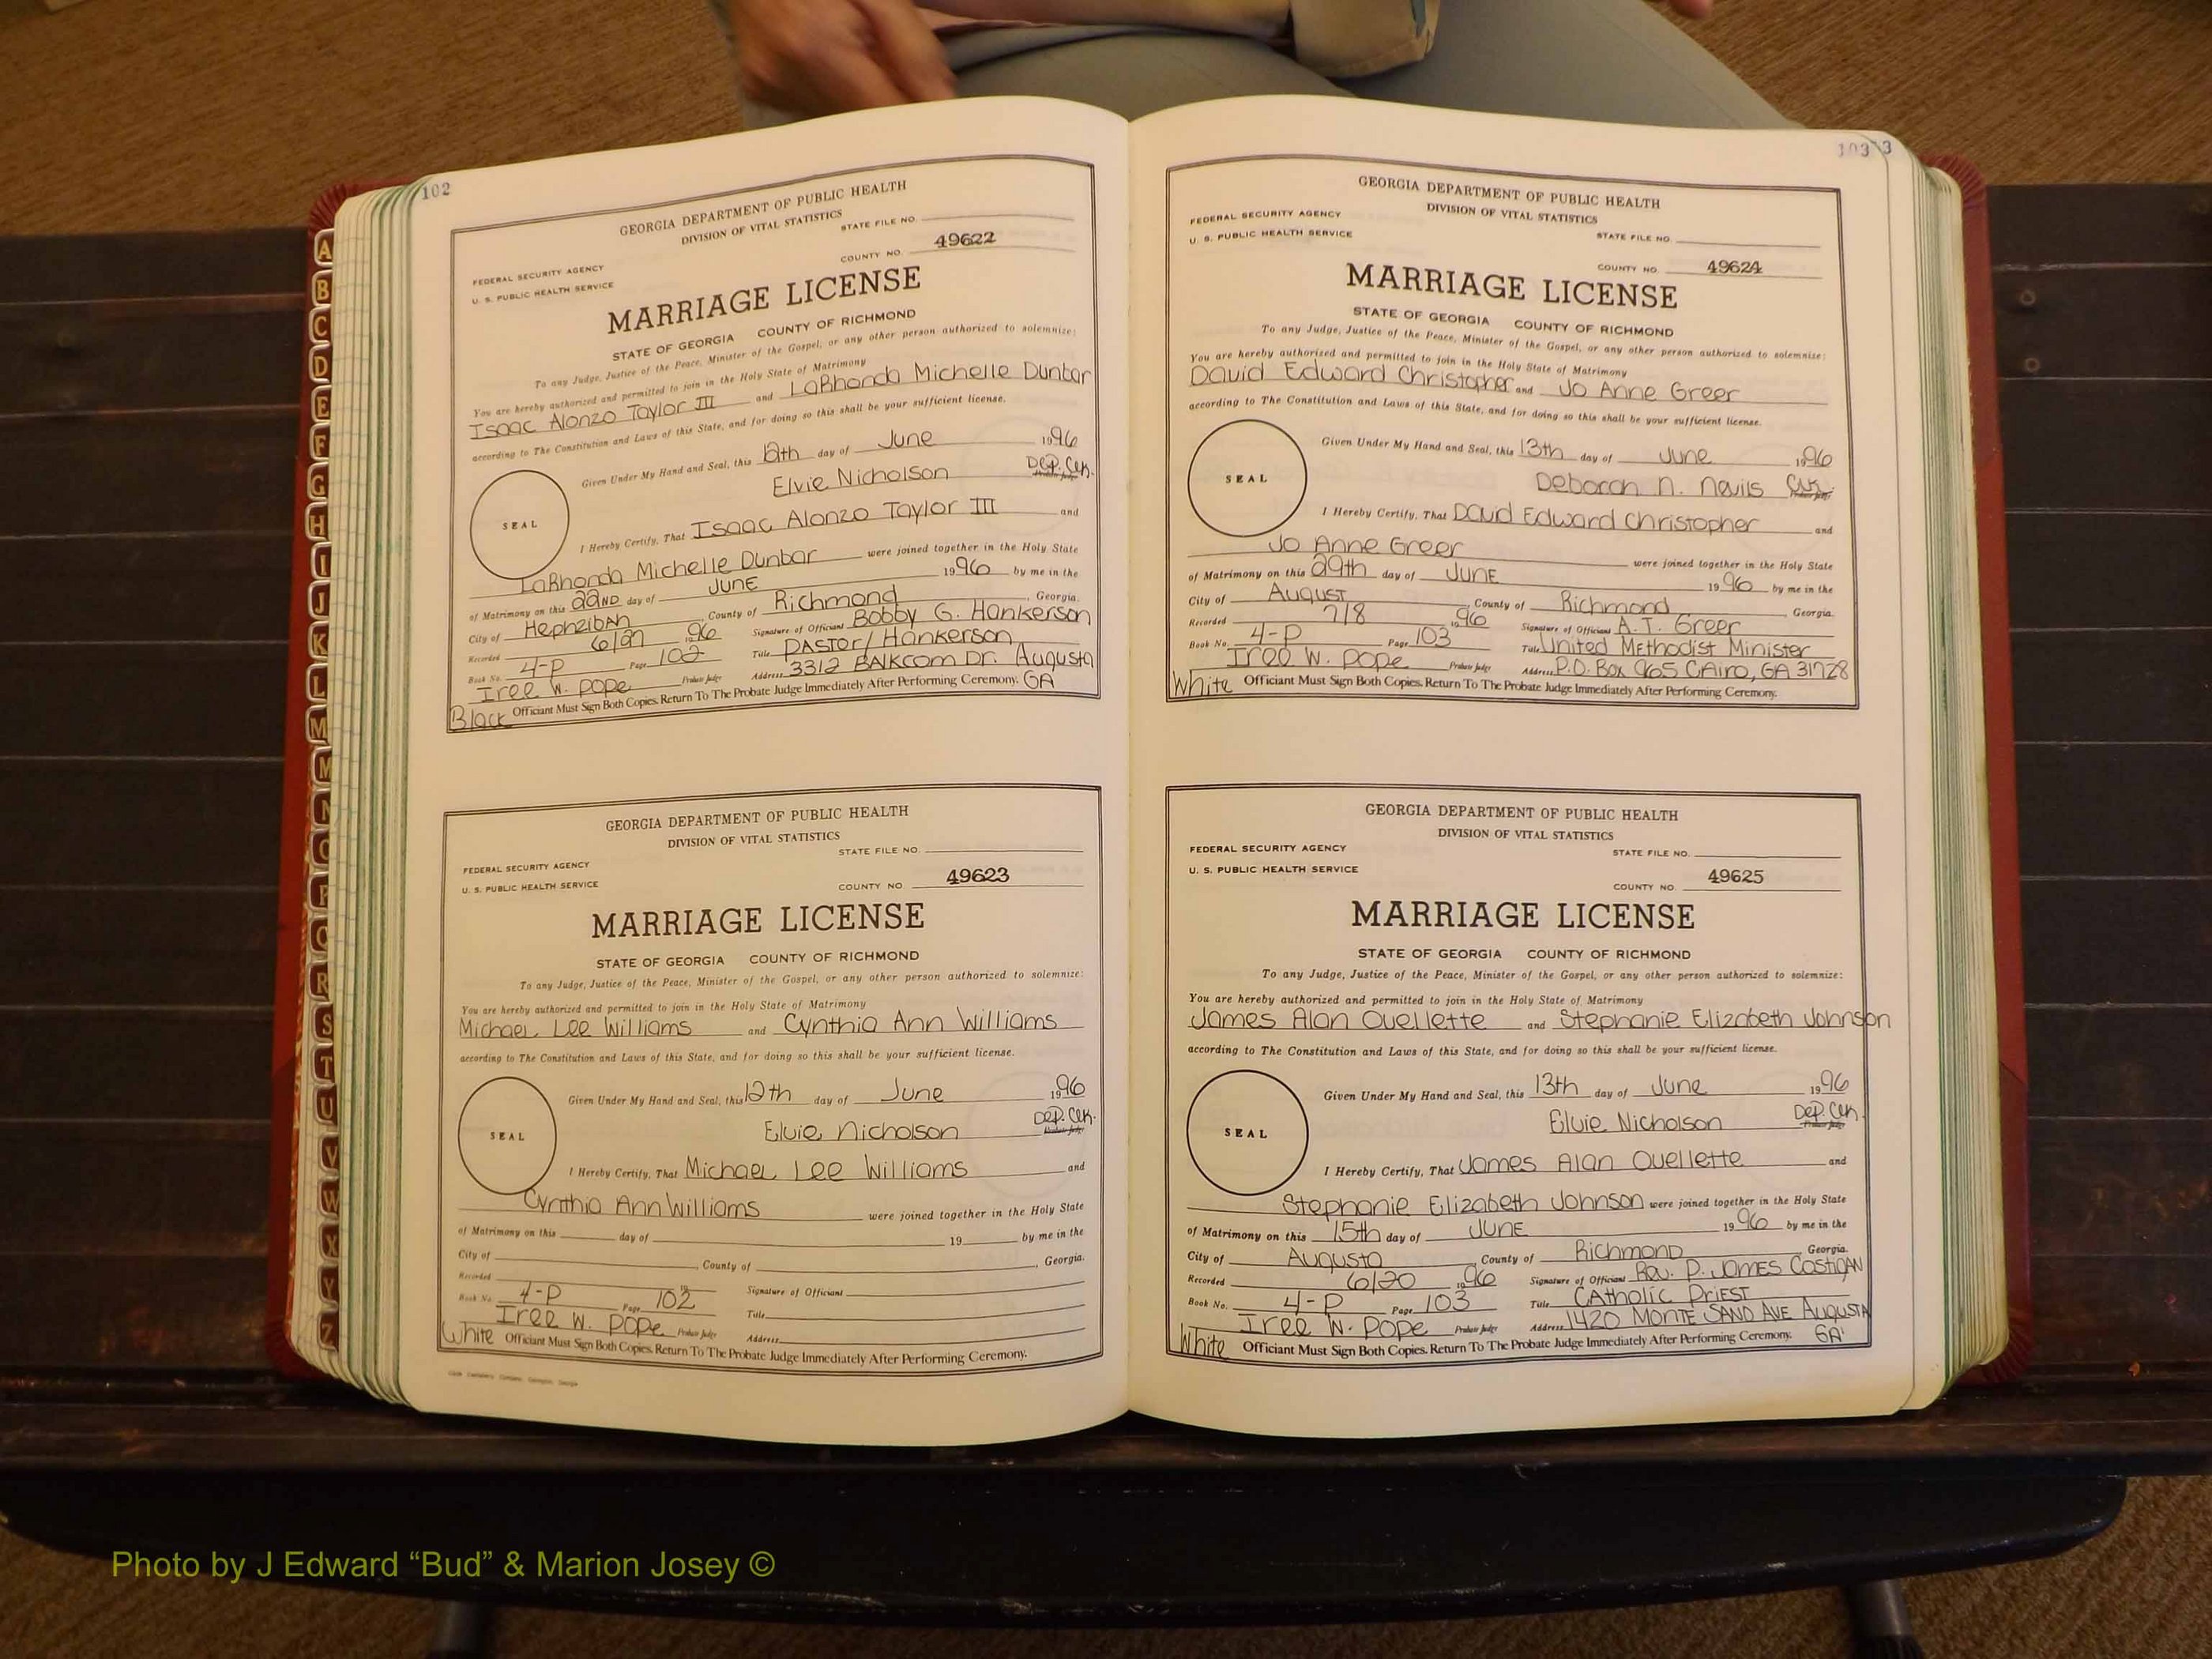 102
GEORGIA DEPARTMENT OF PUBLIC HEALTH
DIVISION OF VITAL STATISTICS
STATE FILE NO.
FEDERAL SECURITY AGENCY
U. S. PUBLIC HEALTH SERVICE
COUNTY NO. 49622
MARRIAGE LICENSE
STATE OF GEORGIA COUNTY OF RICHMOND
To any Judge, Justice of the Peace, Minister of the Gospel, or any other person authorized to solemnize:
You are hereby authorized and permitted to join in the Holy State of Matrimony
Isaac Alonzo Taylor III and LaRhonda Michelle Dunbar
according to The Constitution and Laws of this State, and for doing so this shall be your sufficient license.
Given Under My Hand and Seal, this 12th day of June 1996
Elvie Nicholson Dep. Clk.
Probate Judge
SEAL
I Hereby Certify, That Isaac Alonzo Taylor III and
LaRhonda Michelle Dunbar were joined together in the Holy State
of Matrimony on this 22ND day of JUNE 1996 by me in the
City of HephzibAh County of Richmond, Georgia.
Recorded 6/27 1996 Signature of Officiant Bobby G. Hankerson
Book No. 4-P Page 102 Title PASTOR/Hankerson
Iree W. Pope Probate Judge Address 3312 BAlkcom Dr. Augusta
Black Officiant Must Sign Both Copies. Return To The Probate Judge Immediately After Performing Ceremony. GA
GEORGIA DEPARTMENT OF PUBLIC HEALTH
DIVISION OF VITAL STATISTICS
STATE FILE NO.
FEDERAL SECURITY AGENCY
U. S. PUBLIC HEALTH SERVICE
COUNTY NO. 49623
MARRIAGE LICENSE
STATE OF GEORGIA COUNTY OF RICHMOND
To any Judge, Justice of the Peace, Minister of the Gospel, or any other person authorized to solemnize:
You are hereby authorized and permitted to join in the Holy State of Matrimony
Michael Lee Williams and Cynthia Ann Williams
according to The Constitution and Laws of this State, and for doing so this shall be your sufficient license.
Given Under My Hand and Seal, this 12th day of June 1996
Elvie Nicholson Dep. Clk.
Probate Judge
SEAL
I Hereby Certify, That Michael Lee Williams and
Cynthia Ann Williams were joined together in the Holy State
of Matrimony on this day of 19 by me in the
City of County of , Georgia.
Recorded 19 Signature of Officiant
Book No. 4-P Page 102 Title
Iree W. Pope Probate Judge Address
White Officiant Must Sign Both Copies. Return To The Probate Judge Immediately After Performing Ceremony.
103 3
GEORGIA DEPARTMENT OF PUBLIC HEALTH
DIVISION OF VITAL STATISTICS
FEDERAL SECURITY AGENCY
U. S. PUBLIC HEALTH SERVICE
STATE FILE NO.
COUNTY NO. 49624
MARRIAGE LICENSE
STATE OF GEORGIA COUNTY OF RICHMOND
To any Judge, Justice of the Peace, Minister of the Gospel, or any other person authorized to solemnize:
You are hereby authorized and permitted to join in the Holy State of Matrimony
David Edward Christopher and Jo Anne Greer
according to The Constitution and Laws of this State, and for doing so this shall be your sufficient license.
Given Under My Hand and Seal, this 13th day of June 1996
Deborah N. Nevils Clk.
Probate Judge
SEAL
I Hereby Certify, That David Edward Christopher and
Jo Anne Greer were joined together in the Holy State
of Matrimony on this 29th day of JUNE 1996 by me in the
City of August County of Richmond Georgia.
Recorded 7/8 1996 Signature of Officiant A.T. Greer
Book No. 4-P Page 103 Title United Methodist Minister
Iree W. Pope Probate Judge Address P.O. Box 965 CAiro, GA 31728
White Officiant Must Sign Both Copies. Return To The Probate Judge Immediately After Performing Ceremony.
GEORGIA DEPARTMENT OF PUBLIC HEALTH
DIVISION OF VITAL STATISTICS
FEDERAL SECURITY AGENCY
STATE FILE NO.
U. S. PUBLIC HEALTH SERVICE
COUNTY NO. 49625
MARRIAGE LICENSE
STATE OF GEORGIA COUNTY OF RICHMOND
To any Judge, Justice of the Peace, Minister of the Gospel, or any other person authorized to solemnize:
You are hereby authorized and permitted to join in the Holy State of Matrimony
James Alan Ouellette and Stephanie Elizabeth Johnson
according to The Constitution and Laws of this State, and for doing so this shall be your sufficient license.
Given Under My Hand and Seal, this 13th day of June 1996
Elvie Nicholson Dep. Clk.
Probate Judge
SEAL
I Hereby Certify, That James Alan Ouellette and
Stephanie Elizabeth Johnson were joined together in the Holy State
of Matrimony on this 15th day of JUNE 1996 by me in the
City of Augusta County of Richmond, Georgia.
Recorded 6/20 1996 Signature of Officiant Rev. P. JAMES COSTIGAN
Book No. 4-P Page 103 Title CAtholic PRIEST
Iree W. Pope Probate Judge Address 1420 MONTE SAND AVE AUGUSTA
White Officiant Must Sign Both Copies. Return To The Probate Judge Immediately After Performing Ceremony. GA
A
B
C
D
E
F
G
H
I
J
K
L
M
M
N
O
P
Q
R
S
T
U
V
W
X
Y
Z
Photo by J Edward “Bud” & Marion Josey ©